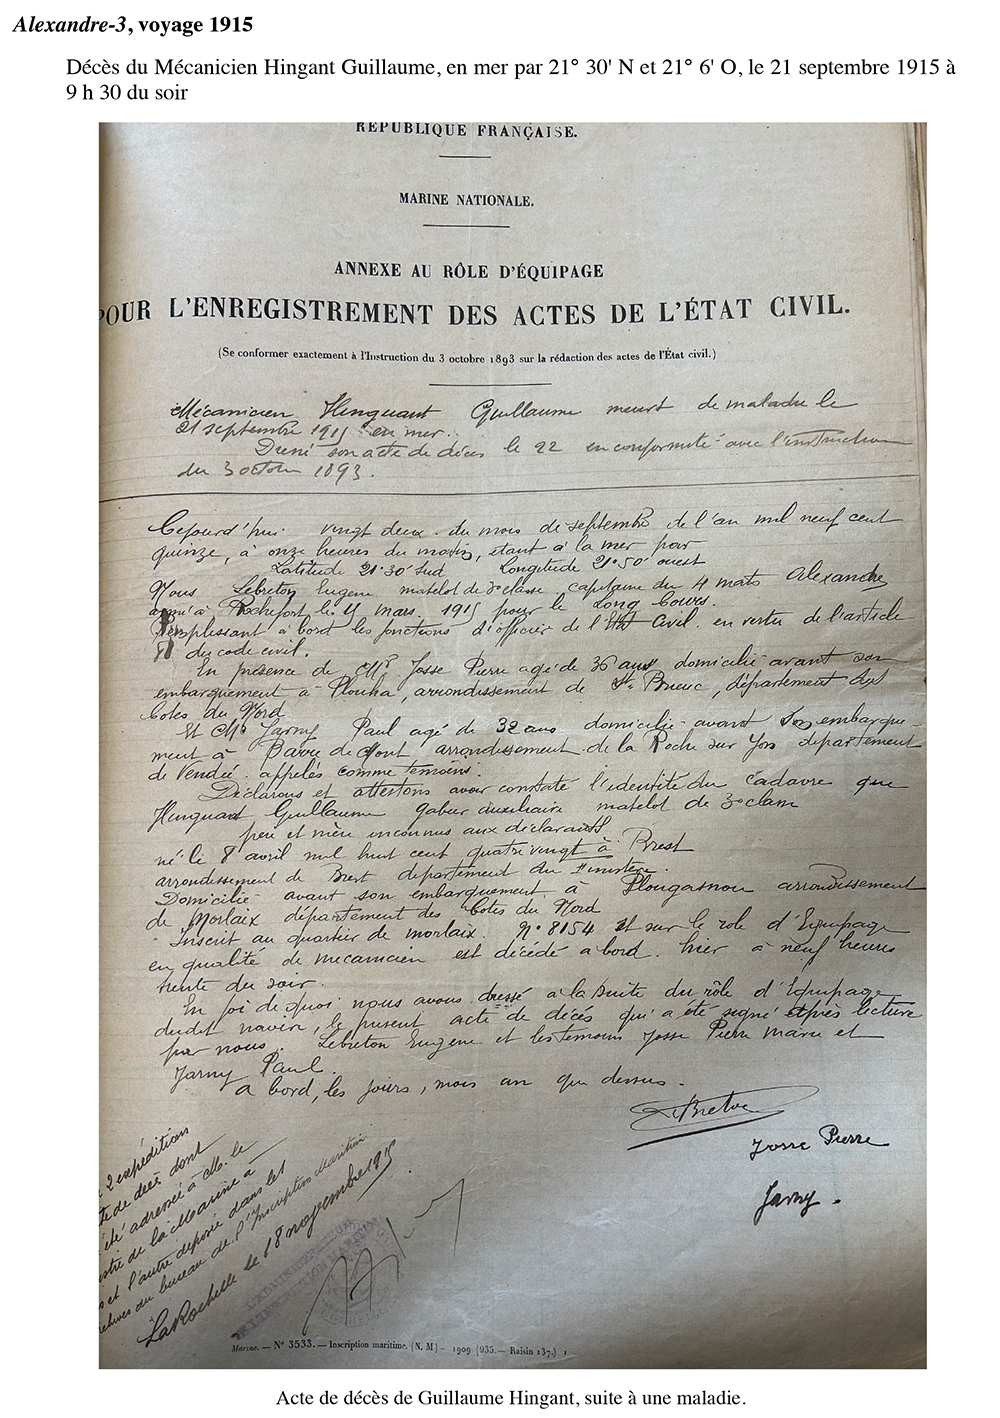 Alexandre-3, voyage 1915
Décès du Mécanicien Hingant Guillaume, en mer par 21° 30' N et 21° 6' O, le 21 septembre 1915 à
9 h 30 du soir
REPUBLIQUE FRANÇAISE.
MARINE NATIONALE.
ANNEXE AU RÔLE D'ÉQUIPAGE
POUR L'ENREGISTREMENT DES ACTES DE L'ÉTAT CIVIL.
(Se conformer exactement à l'Instruction du 3 octobre 1893 sur la rédaction des actes de l'État civil.)
Mécanicien Hinguant Guillaume meurt de maladie le
21 septembre 1915 en mer.
son acte de décès le 22 en conformité avec l'instruction
du 3 octobre 1893.
Cejourd'hui vingt deux du mois de septembre de l'an mil neuf cent
quinze, à onze heures du matin, étant à la mer par
Latitude 21°30' Sud Longitude 21°50' ouest
Nous Lebreton Eugene matelot de 3e classe capitaine du 4 mats Alexandre
armé à Rochefort le mars 1915 pour le Long Cours.
Remplissant à bord les fonctions d'officier de l'Etat Civil en vertu de l'article
du code civil.
En présence de Mr Josse Pierre agé de 36 ans domicilié avant son
embarquement à Plouha, arrondissement de St Brieuc, département des
Cotes du Nord
Et Mr Jarny Paul agé de 32 ans domicilié avant son embarque-
ment à Barre de Mont arrondissement de la Roche sur Yon departement
de Vendée appelés comme temoins.
Déclarons et attestons avoir constaté l'identité du cadavre que
Hinguant Guillaume gabier auxiliaire matelot de 3e classe
père et mère inconnus aux déclarants
né le 8 avril mil huit cent quatre vingt à Brest
arrondissement de Brest departement du Finistère.
Domicilié avant son embarquement à Plougasnou arrondissement
de Morlaix département des Cotes du Nord
Inscrit au quartier de morlaix. N° 8154 et sur le role d'Equipage
en qualité de mecanicien est décédé a bord hier à neuf heures
trente du soir.
En foi de quoi nous avons dressé a la suite du rôle d'Equipage
dudit navire, le présent acte de décès qui a été signé après lecture
par nous Lebreton Eugène et les temoins Josse Pierre Marie et
Jarny Paul.
a bord, les jours, mois an que dessus.
Lebreton
Josse Pierre
Jarny.
2 expéditions
de décès dont
été adressée à M. le
de la Marine à
et l'autre déposée dans les
du bureau de l'Inscription Maritime
La Rochelle le 18 novembre 1915
Marine. — N° 3533. — Inscription maritime. (N. M) — 1909 (935. — Raisin 137.) 1
Acte de décès de Guillaume Hingant, suite à une maladie.